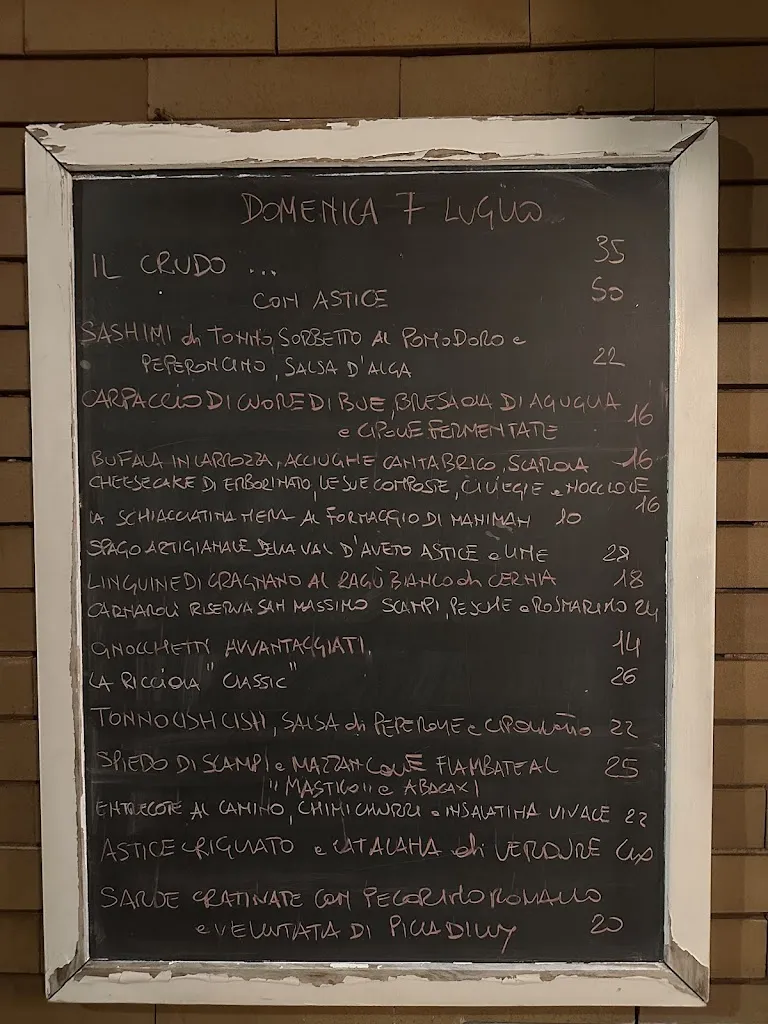 DOMENICA 7 LUGLIO
IL CRUDO ... 35
CON ASTICE 50
SASHIMI di TONNO, SORBETTO AL POMODORO e
PEPERONCINO, SALSA D'ALGA 22
CARPACCIO DI CUORE DI BUE, BRESAOLA DI AGUGLIA 16
e CIPOLLE FERMENTATE
BUFALA IN CARROZZA, ACCIUGHE CANTABRICO, SCAROLA 16
CHEESECAKE DI ERBORINATO, LE SUE COMPOSTE, CILIEGIE e NOCCIOLE
16
LA SCHIACCIATINA NERA AL FORMAGGIO DI MANIMAN 10
SPAGO ARTIGIANALE DELLA VAL D'AVETO ASTICE e LIME 28
LINGUINE DI GRAGNANO AL RAGÙ BIANCO di CERNIA 18
CARNAROLI RISERVA SAN MASSIMO SCAMPI, PESCHE e ROSMARINO 24
GNOCCHETTI AVVANTAGGIATI. 14
LA RICCIOLA "CLASSIC" 26
TONNO CISH CISH, SALSA di PEPERONE e CIPOLLOTTO 22
SPIEDO DI SCAMPI e MAZZANCOLLE FIAMBATE AL 25
"MASTICO" e ABACAXI
ENTRECOTE AL CAMINO, CHIMICHURRI e INSALATINA VIVACE 22
ASTICE GRIGLIATO e CATALANA di VERDURE
SARDE GRATINATE CON PECORINO ROMANO
e VELLUTATA DI PICCADILLY 20